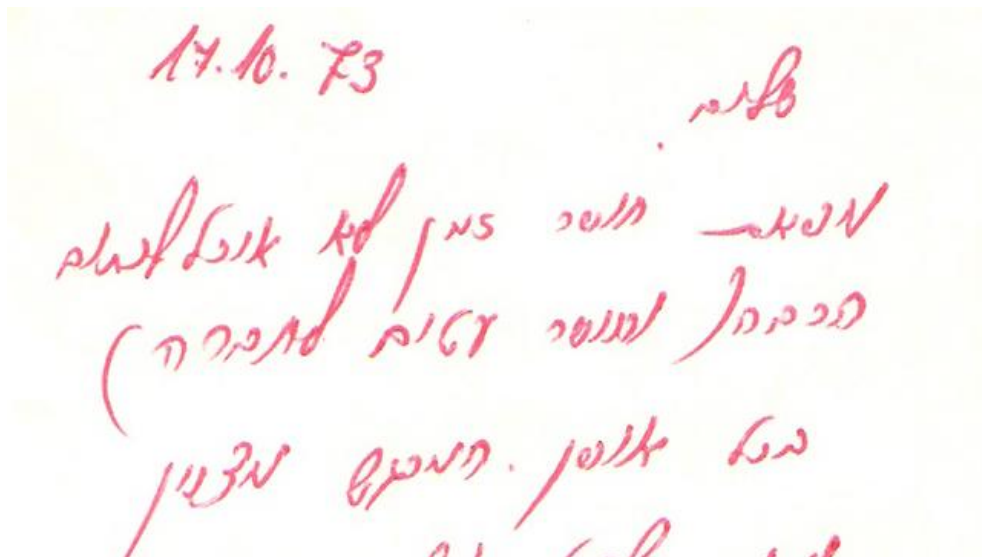 17.10.73
שלום.
מפאת חוסר זמן לא אוכל לכתוב
הרבה (וחוסר עטים לחברה)
בכל אופן. מצוין